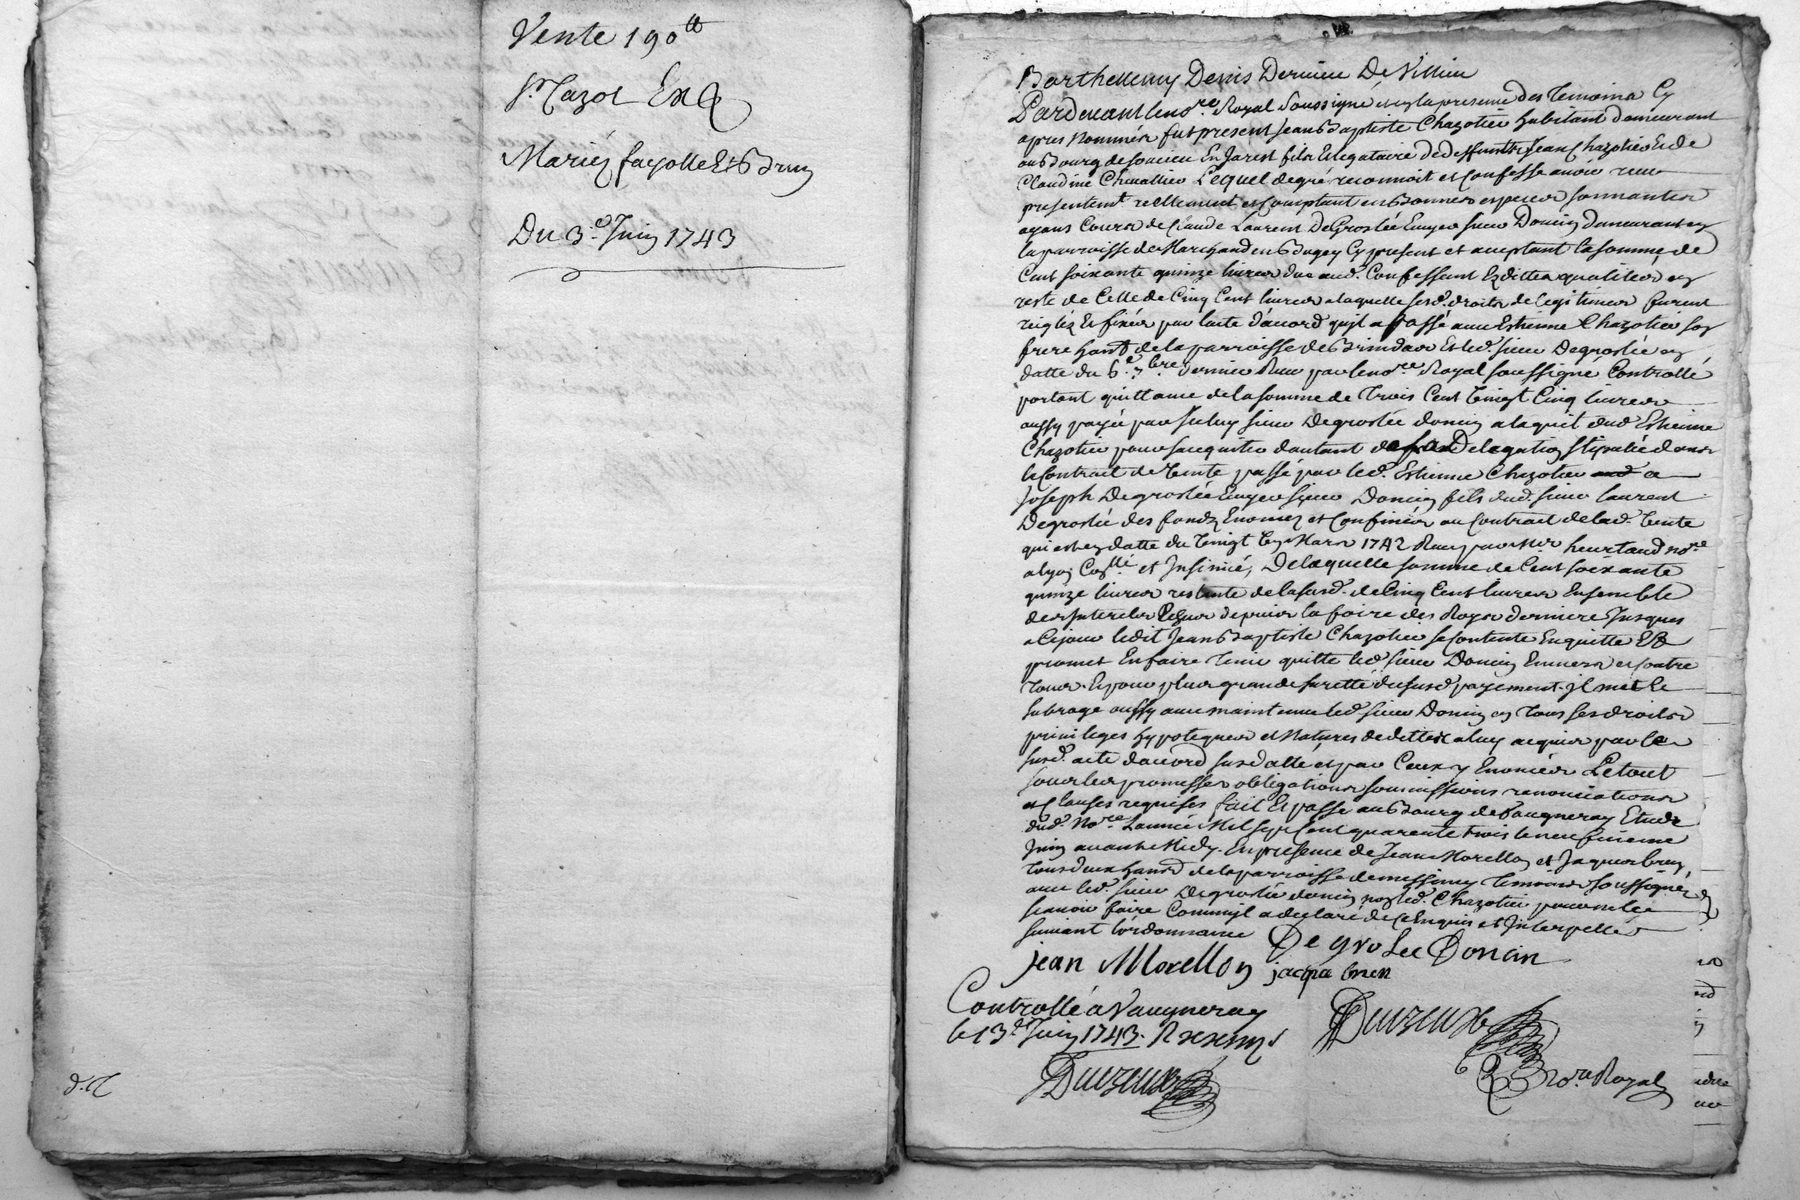 Vente 190 lt
Sr Cazot Exp
Mariés fayolle Et Brun
Du 3e Juin 1743
d. R
Barthelemy Denis Dervieu De Villieu
Pardevant le no.re Royal Soussigné et en la presence des Temoins Cy
apres Nommés fut present Jean Baptiste Chazotier habitant demeurant
au Bourg de Soucieu En Jarest fils Et legataire de deffunts Jean Chazotier Et de
Claudine Chevallier Lequel de gré reconnoit et Confesse avoir receu
presentemt reellement et Comptant en Bonnes especes sonnantes
ayans Cours de Claude Laurent De Grolée Ecuyer sieur Doncin demeurant en
la parroisse de Marchand en Bugey Cy present et acceptant la somme de
Cent soixante quinze livres due aud. Confessant Esdittes qualites en
reste de Celle de Cinq Cent livres a laquelle sesd. droits de legitimes furent
reiglés Et fixés par l'acte d'accord qu'il a passé avec Estienne Chazotier son
frere hant de la parroisse de Brindas Et led. sieur Degrolée en
datte du 6.e 7bre dernier Receu par le no.re Royal soussigné Controllé
portant quittance de la somme de Trois Cent Vingt Cinq livres
aussy payée par Iceluy sieur Degrolée doncin a l'aquit dud. Estienne
Chazotier pour s'acquiter d'autant de sa Delegation stipulée dans
le Contrait de Vente passé par led. Estienne Chazotier a
Joseph Degrolée Ecuyer sieur Doncin fils dud. sieur laurent
Degrolée des fondz Enoncez et Confinés au Contrait de lad. Vente
qui est en datte du Vingt Mars 1742 Receu par Mre heurtaud no.re
a lyon Conllé et Insinué, De laquelle somme de Cent soixante
quinze livres restante de la susd. de Cinq Cent livres Ensemble
des Interets Echus depuis la foire des Roys derniere Jusques
a Cejour ledit Jean Baptiste Chazotier se Contente En quitte Et
promet En faire Tenir quitte led. sieur Doncin Envers et Contre
Tous. Et pour plus grande seureté du susd. payement. Il met le
subroge aussy avec maintenue led. sieur Doncin en Tous ses droits
privileges hypoteques et Natures de dettes a luy acquis par le
susd. acte d'accord susdatte et par Ceux y Enoncés Le tout
sous les promesses obligations soumissions renonciations
et Clauses requises fait Et passé au Bourg de Vaugneray Etude
dud. No.re L'année Mil sept Cent quarente trois le neufvieme
Juin avant Midy. En presence de Jean Morellon et Jaques brun
Tous deux hans de la parroisse de messimy Temoins soussignés
avec led. sieur Degrolée doncin non led. Chazotier pour ne le
scavoir faire Comm'il a declaré de Ce Enquis et Interpellé
suivant l'ordonnance
De groleé Doncin
jean Morellon
jacque brun
Controllé a Vaugneray
le 13.e Juin 1743.
no.re Royal